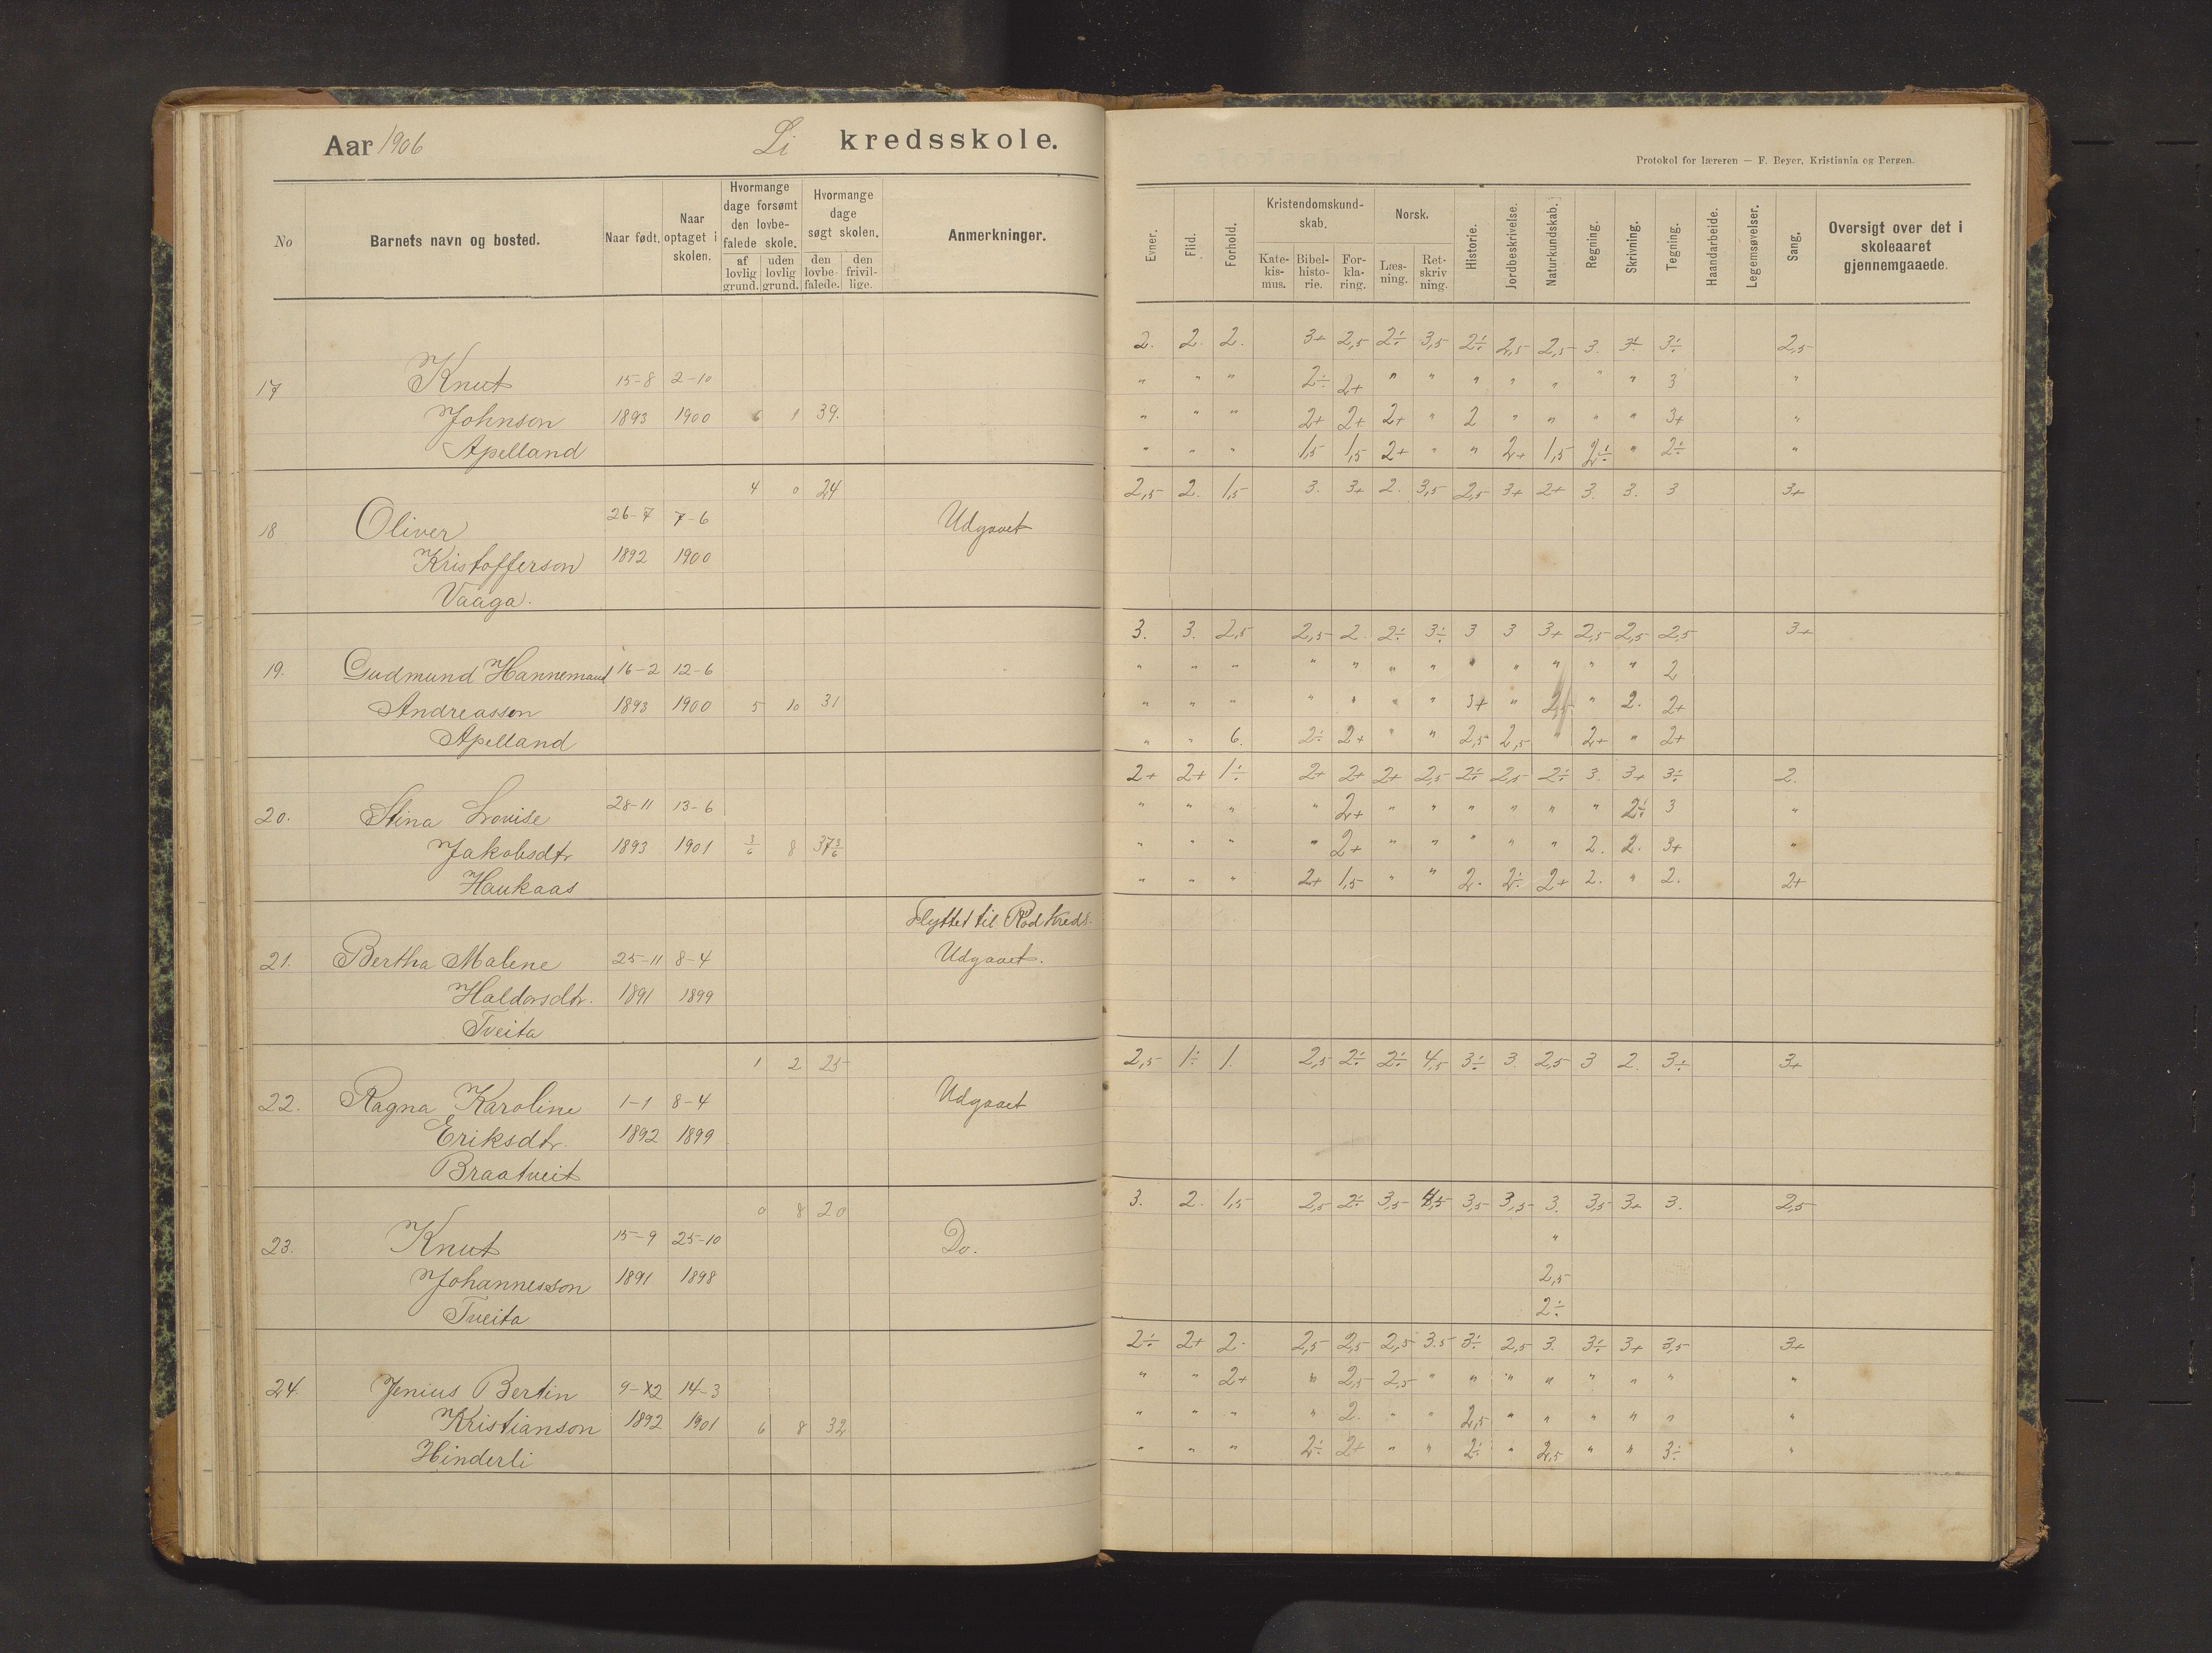 Aar 1906 Li kredsskole.
Protokol for læreren — F. Beyer, Kristiania og Bergen.
No
Barnets navn og bosted.
Naar født.
Naar optaget i skolen.
Hvormange dage forsømt den lovbefalede skole.
af lovlig grund.
uden lovlig grund.
Hvormange dage søgt skolen.
den lovbefalede.
den frivillige.
Anmerkninger.
Evner.
Flid.
Forhold.
Kristendomskundskab.
Katekismus.
Bibelhistorie.
Forklaring.
Norsk.
Læsning.
Retskrivning.
Historie.
Jordbeskrivelse.
Naturkundskab.
Regning.
Skrivning.
Tegning.
Haandarbeide.
Legemsøvelser.
Sang.
Oversigt over det i skoleaaret gjennemgaaede.
2. 2. 2. 3+ 2,5 2÷ 3,5 2÷ 2,5 2,5 3. 3÷ 2,5
17 Knut 15-8 2-10 " " " 2÷ 2+ " " " " " " " 3 "
Johnson 1893 1900 6 1 39. " " " 2+ 2+ 2+ " 2 " " " " 3+ "
Apelland " " " 1,5 1,5 2+ " " 2+ 1,5 2÷ " 2÷ "
4 0 24 2,5 2. 1,5 3. 3+ 2. 3,5 2,5 3+ 2+ 3. 3. 3 3+
18 Oliver 26-7 7-6 Udgaaet
Kristofferson 1892 1900
Vaaga.
3. 3. 2,5 2,5 2. 2÷ 3÷ 3 3 3+ 2,5 2,5 2,5 3+
19. Gudmund Hannemand 16-2 12-6 " " " " " " " " " " " " 2
Andreassen 1893 1900 5 10 31 " " " " " " " 3+ " " 2. 2+
Apelland " " 6. 2÷ 2+ " " 2,5 2,5 " 2+ " 2+
2+ 2+ 1÷ 2+ 2+ 2+ 2,5 2÷ 2,5 2÷ 3. 3+ 3÷ 2.
20. Stina Lovise 28-11 13-6 " " " " 2+ " " " " " " 2÷ 3 "
Jakobsdtr 1893 1901 3/6 8 37 3/6 " " " " 2+ " " " " " 2. 2. 3+ "
Haukaas " " " 2+ 1,5 " " 2. 2÷ 2+ 2. " 2. 2+
Flyttet til Rød Kreds.
21. Bertha Malene 25-11 8-4 Udgaaet.
Haldorsdtr. 1891 1899
Tveita
1 2 25 2,5 1÷ 1. 2,5 2÷ 2÷ 4,5 3÷ 3. 2,5 3 2. 3÷ 3+
22. Ragna Karoline 1-1 8-4 Udgaaet
Eriksdtr. 1892 1899
Braatveit
0 8 20 3. 2. 1,5 2,5 2÷ 3,5 4,5 3,5 3,5 3. 3,5 3+ 3. 2,5
23. Knut 15-9 25-10 Do. "
Johannesson 1891 1898 2,5
Tveita 2÷
2÷ 2+ 2. 2,5 2,5 2,5 3.5 3÷ 2,5 3. 3÷ 3+ 3,5 3+
24. Jenius Bertin 9-12 14-3 " " 2+ " 2,5 2,5 " " " " " " " "
Kristianson 1892 1901 6 8 32 " " " " 2. " " 2,5 " " " " " "
Hinderli " " " 2÷ 2+ " " 2÷ " 2,5 " " 3÷ "